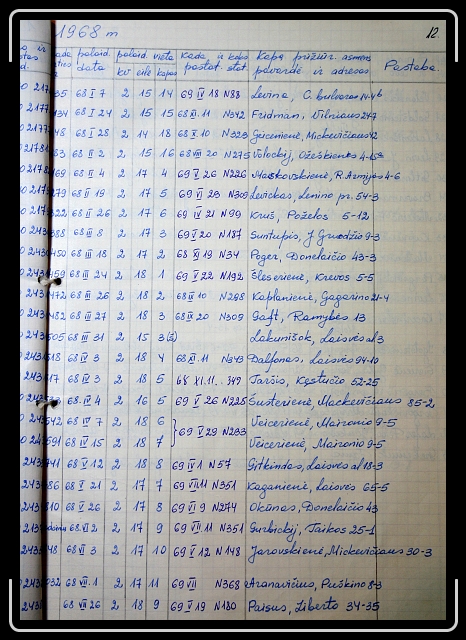 1968 m 12.
palaid. data palaid. vieta Kada ir kokos Kapą prižiūr. asmens Pastaba.
kv eilė kapas pastat. stat. pavardė ir adresas
35 68 I 7 2 15 14 69 IV 18 N88 Levina, C. bulvaras 14-46
134 68 I 24 2 15 15 68 XI.11 N342 Fridman, Vilniaus 247
48 68 I 28 2 14 18 68 X.10 N323 Mickevičiaus
83 68 II 2 2 15 16 68 VIII 20 N275 Volockij, Ožeškienės 4-15a
169 68 II 4 2 17 4 69 V 26 N226 Maskovskienė, R. Armijos 4-6
279 68 II 19 2 17 5 69 VI 23 N309 Levickas, Lenino pr. 54-3
322 68 II 26 2 17 6 69 IV 21 N99 Kruš, Požėlos 5-12
388 68 III 8 2 17 3 69 V 20 N187 Suntupis, J. Gruodžio 9-3
450 68 III 18 2 17 2 68 XI 19 N34 Poger, Donelaičio 43-3
459 68 III 24 2 18 1 69 V 22 N192 Šleserienė, Krėvos 5-5
472 68 III 26 2 18 2 68 IX 10 N298 Kaplanienė, Gagarino 21-4
482 68 III 27 2 18 3 68 IX 20 N309 Gaft, Ramybės 13
505 68 III 31 2 15 3(a) Labunišok, Laisvės al 3
518 68 IV 3 2 18 4 68 XI.11 N343 Dalfonas, Laisvės 94-10
17 68 IV 3 2 18 5 68 XI.11. .349 Taršis, Kęstučio 52-25
68.IV 4 2 16 5 69 V 26 N225 Šusterienė, Mackevičiaus 85-2
542 68 IV 7 2 18 6 Veicerienė, Maironio 9-5
69 V 29 N233
591 68 IV 15 2 18 7 Veicerienė, Maironio 9-5
741 68 V 12 2 18 8 69 IV 1 N57 Gitkindas, Laisvės al 18-3
86 68 V 21 2 17 7 69 VII 11 N351 Kaganienė, Laisvės 65-5
810 68 V 26 2 17 8 69 VI 9 N274 Okūnas, Donelaičio 43
68.VI 2 2 17 9 69 VII 11 N351 Gurbickij, Taikos 25-1
48 68 VI 3 2 17 10 69 V 12 N148 Jarovskienė, Mickevičiaus 30-3
932 68 VII.1 2 17 11 69 VII N368 Aranavičius, Puškino 8-3
68 VII 26 2 18 9 69 V 19 N180 Paisus, Liberto 34-35